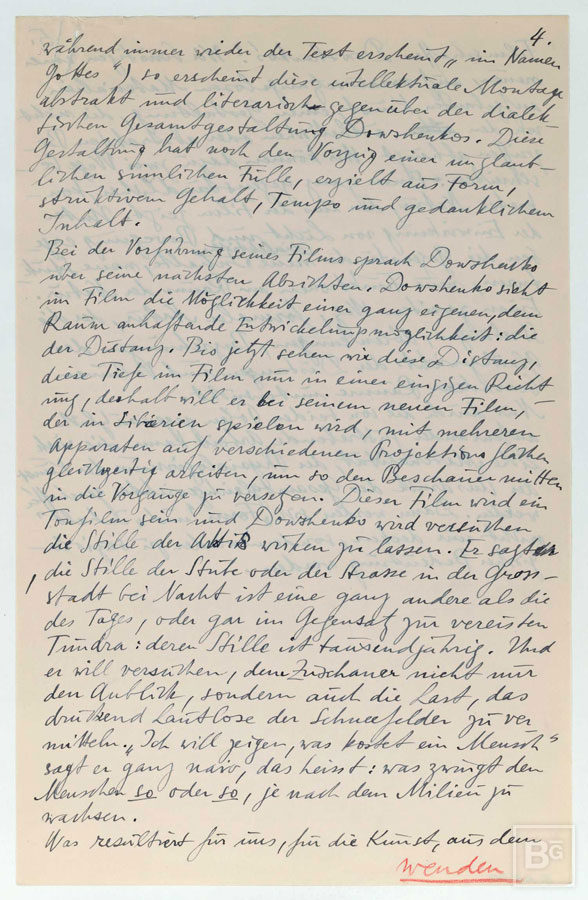 4.
während immer wieder der Text erscheint „im Namen
Gottes“) so erscheint diese intellektuale Montage
abstrakt und literarisch gegenüber der dialek-
tischen Gesamtgestaltung Dowshenkos. Diese
Gestaltung hat noch den Vorzug einer unglaub-
lichen sinnlichen Fülle, erzielt aus Form,
struktivem Gehalt, Tempo und gedanklichem
Inhalt.
Bei der Vorführung seines Films sprach Dowshenko
über seine nächsten Absichten. Dowshenko sieht
im Film die Möglichkeit einer ganz eigenen, dem
Raum anhaftende Entwickelungsmöglichkeit: die
der Distanz. Bis jetzt sehen wir diese Distanz,
diese Tiefe im Film nur in einer einzigen Richt
ung, deshalb will er bei seinem neuen Film,
der in Sibirien spielen wird, mit mehreren
Apparaten auf verschiedenen Projektionsflächen
gleichzeitig arbeiten, um so den Beschauer mitten
in die Vorgänge zu versetzen. Dieser Film wird ein
Tonfilm sein und Dowshenko wird versuchen
die Stille der Arktis wirken zu lassen. Er sagt
, die Stille der Stube oder der Strasse in der Gross-
stadt bei Nacht ist eine ganz andere als die
des Tages, oder gar im Gegensatz zur vereisten
Tundra: deren Stille ist tausendjährig. Und
er will versuchen, dem Zuschauer nicht nur
den Anblick, sondern auch die Last, das
drückend Lautlose der Schneefelder zu ver
mitteln. „Ich will zeigen, was kostet ein Mensch“
sagt er ganz naiv, das heisst: was zwingt den
Menschen so oder so, je nach dem Milieu zu
wachsen.
Was resultiert für uns, für die Kunst, aus dem
wenden
BG